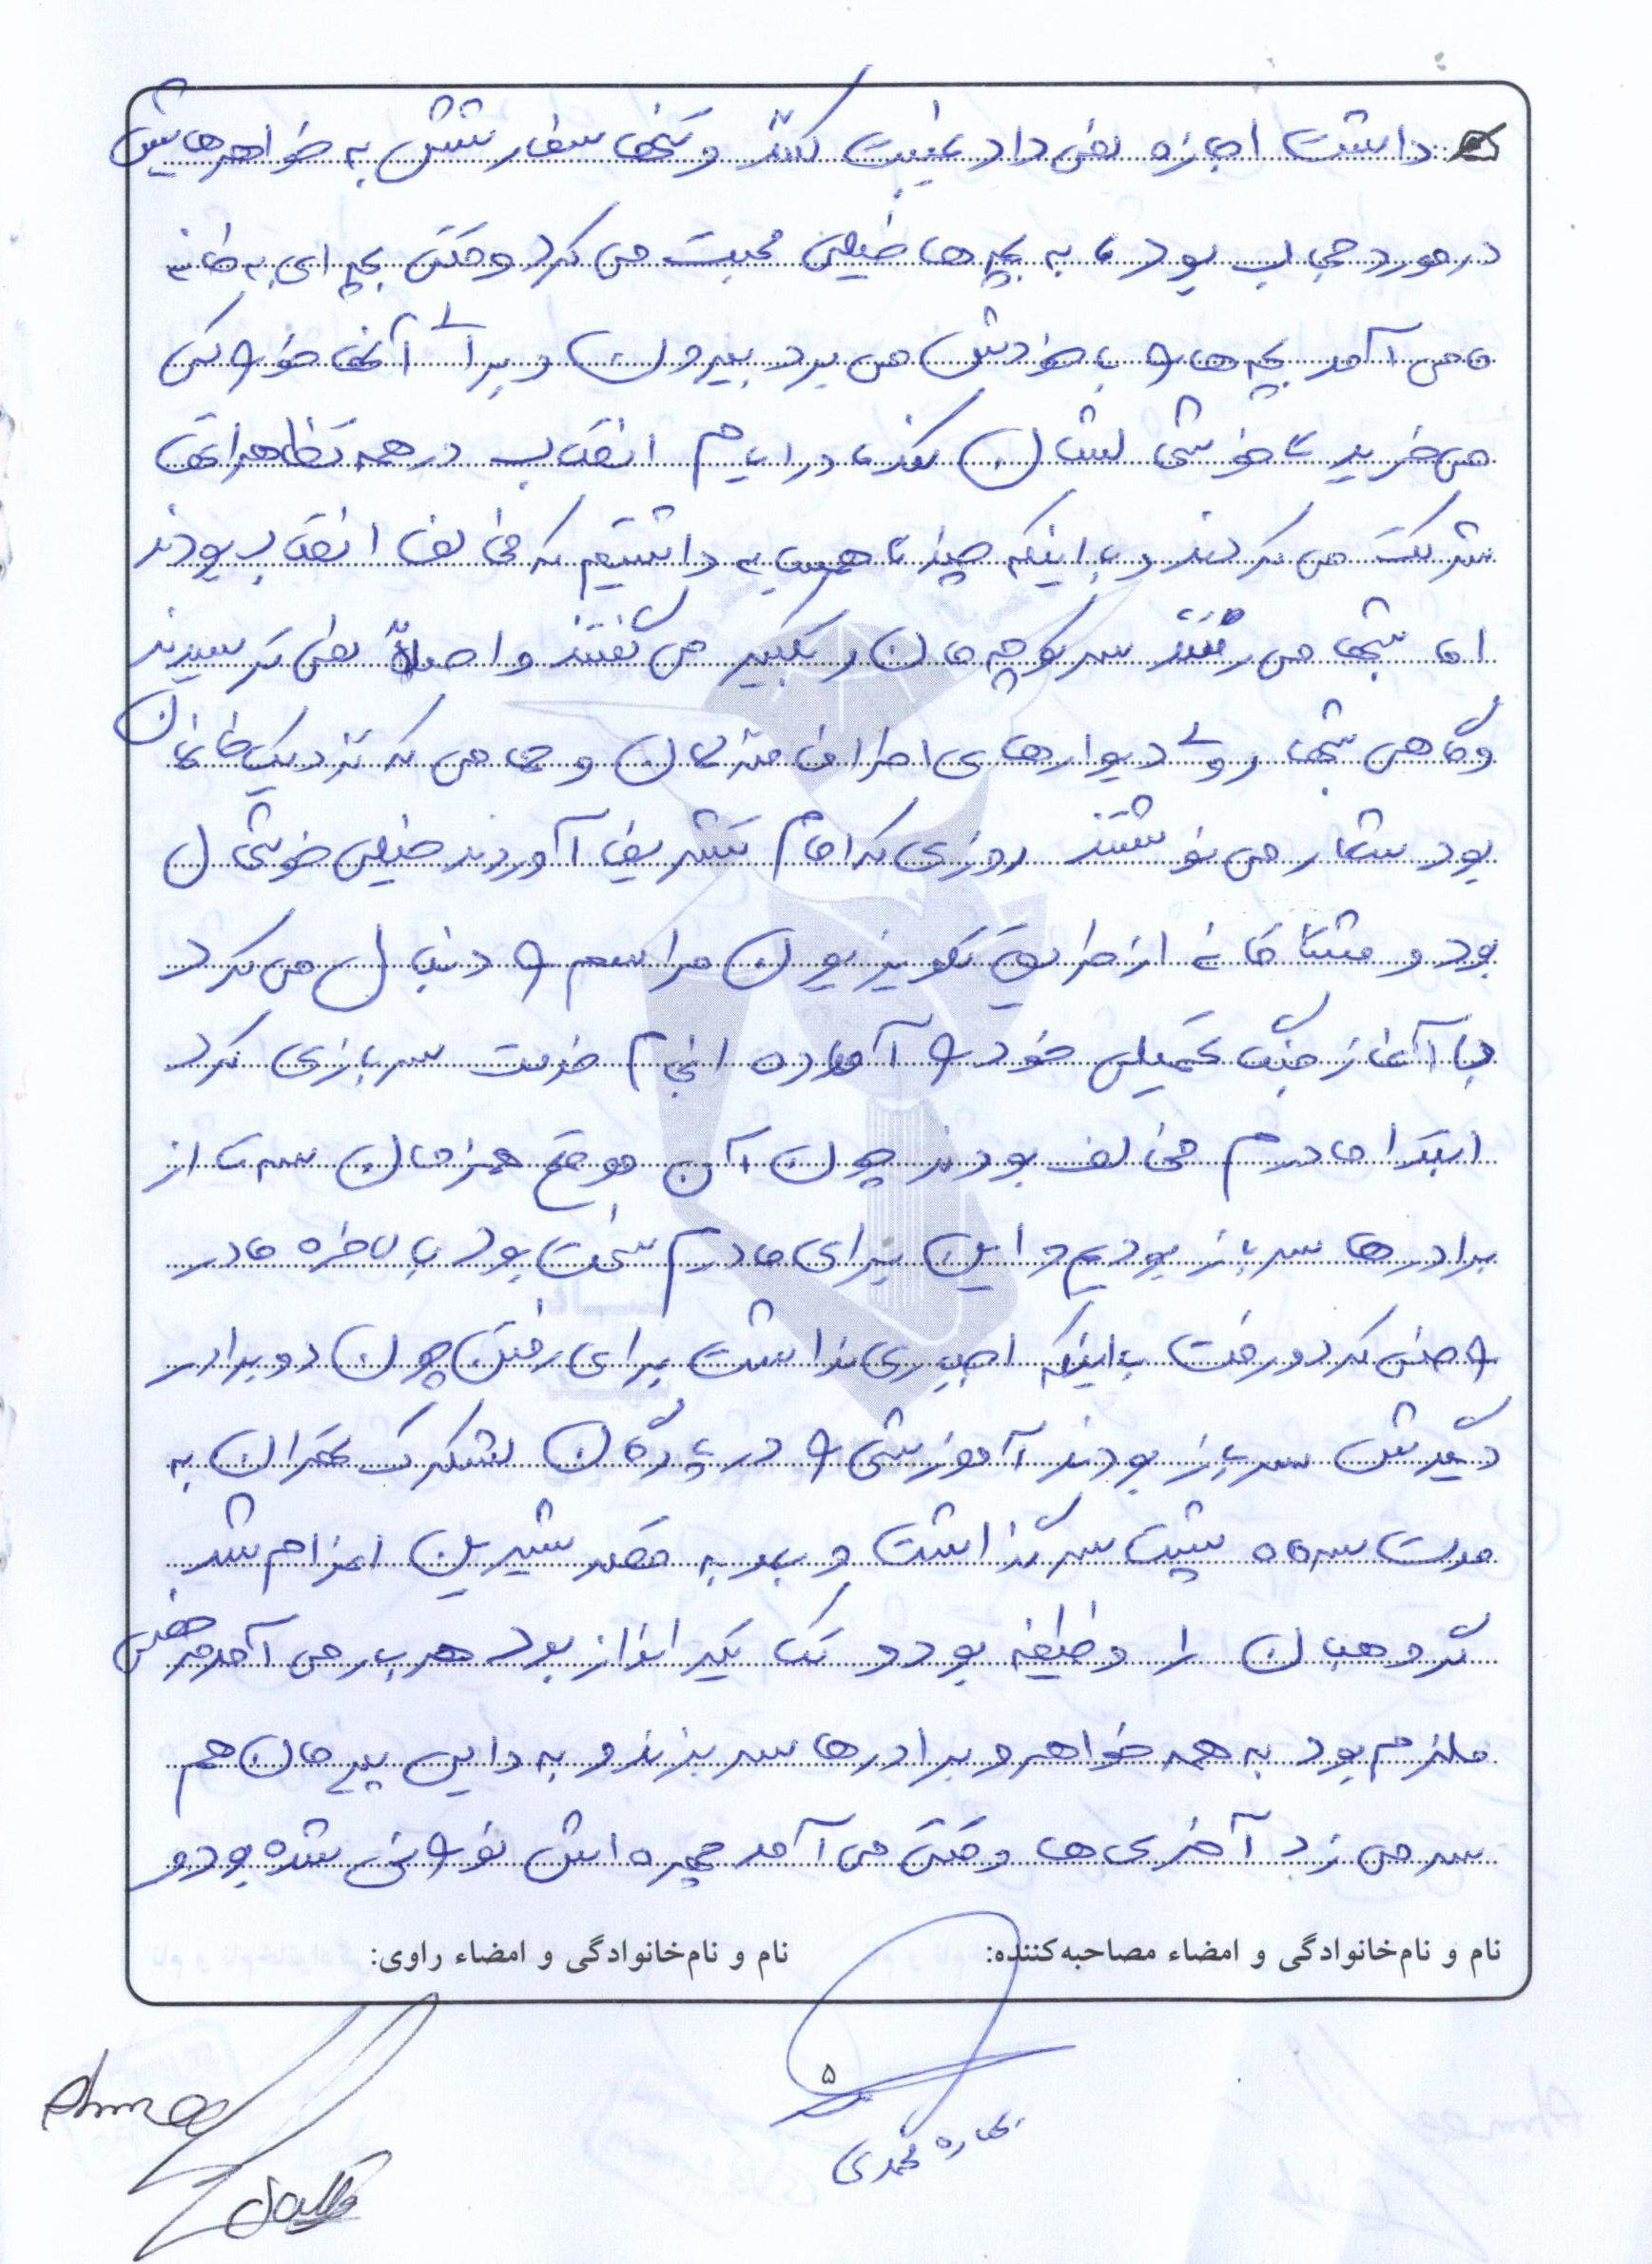 داشت اجازه نمی داد غیبت کنند و تنها سفارشش به خواهرهایش
در مورد حجاب بود، به بچه ها خیلی محبت می کرد وقتی بچه ای به خانه
ما می آمد بچه ها را با خودش می برد بیرون و برای آنها خوراکی
می خرید تا خوشحالشان کند، در ایام انقلاب در همه تظاهراتها
شرکت می کردند و با اینکه چند تا همسایه داشتیم که مخالف انقلاب بودند
اما شبها می رفتند سر کوچه مان و تکبیر می گفتند و اصلاً نمی ترسیدند
و گاهی شبها روی دیوارهای اطراف منزلمان و حمامی که نزدیک خانمان
بود شعار می نوشتند روزی که امام تشریف آوردند خیلی خوشحال
بود و مشتاقانه از طریق تلویزیون مراسم را دنبال می کرد
با آغاز جنگ تحمیلی خود را آماده انجام خدمت سربازی کرد
ابتدا مادرم مخالف بودند چون آن موقع همزمان سه تا از
برادرها سرباز بودیم و این برای مادرم سخت بود بالاخره مادر
راضی کرد و رفت با اینکه اجباری نداشت برای رفتن چون دو برادر
دیگرش سرباز بودند آموزشی را در پادگان لشکرک تهران به
مدت سه ماه پشت سر گذاشت و بعد به قصر شیرین اعزام شد.
گروهبان را وظیفه بود و تک تیرانداز بود هر بار می آمد مرخصی
ملزم بود به همه خواهر و برادرها سر بزند و به دایی پیرمان هم
سر می زد آخری ها وقتی می آمد چهره اش نورانی شده بود و
نام و نام‌خانوادگی و امضاء مصاحبه‌کننده:
نام و نام‌خانوادگی و امضاء راوی:
۵
بهاره محمدی